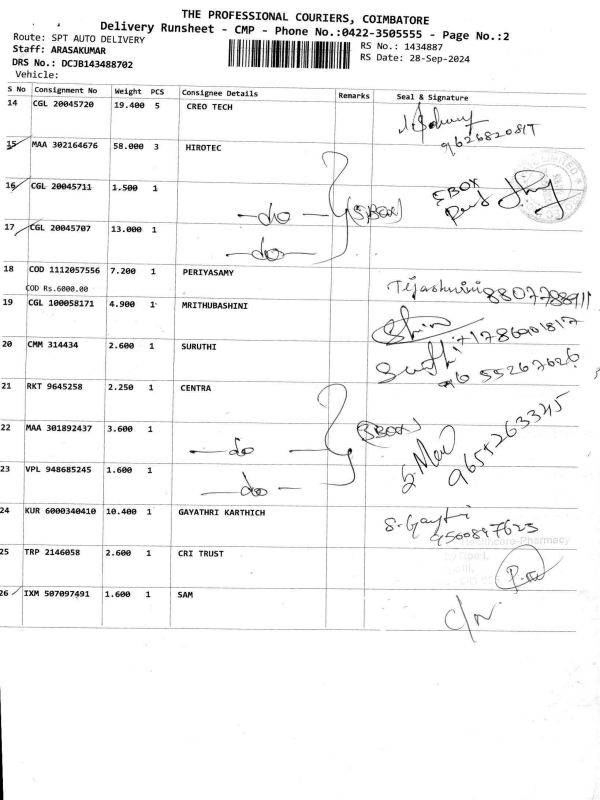 THE PROFESSIONAL COURIERS, COIMBATORE
Delivery Runsheet - CMP - Phone No.:0422-3505555 - Page No.:2
Route: SPT AUTO DELIVERY RS No.: 1434887
Staff: ARASAKUMAR RS Date: 28-Sep-2024
DRS No.: DCJB143488702
Vehicle:
S No Consignment No Weight PCS Consignee Details Remarks Seal & Signature
14 CGL 20045720 19.400 5 CREO TECH
9626820817
15 MAA 302164676 58.000 3 HIROTEC
16 CGL 20045711 1.500 1 -do- (5 BOX) 5 BOX
17 CGL 20045707 13.000 1 -do-
18 COD 1112057556 7.200 1 PERIYASAMY Tejashwini 8807788911
COD Rs.6000.00
19 CGL 100058171 4.900 1 MRITHUBASHINI
20 CMM 314434 2.600 1 SURUTHI Suruthi
9655267626
21 RKT 9645258 2.250 1 CENTRA
22 MAA 301892437 3.600 1 -do- (3 BOX) 9655263345
23 VPL 948685245 1.600 1 -do-
24 KUR 6000340410 10.400 1 GAYATHRI KARTHICH S. Gaytri
9500897625
25 TRP 2146058 2.600 1 CRI TRUST
26 IXM 507097491 1.600 1 SAM c/n